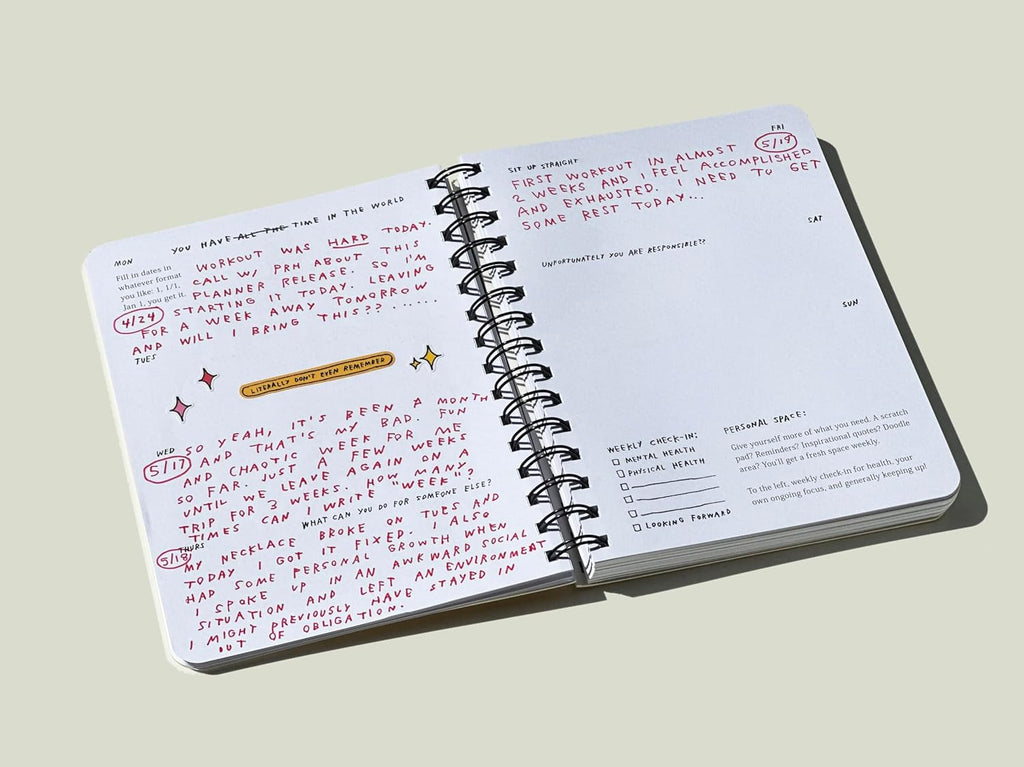 YOU HAVE ALL THE TIME IN THE WORLD
MON
Fill in dates in
whatever format
you like: 1, 1/1,
Jan 1, you get it.
4/24
WORKOUT WAS HARD TODAY.
CALL W/ PRH ABOUT THIS
PLANNER RELEASE. SO I'M
STARTING IT TODAY. LEAVING
FOR A WEEK AWAY TOMORROW
AND WILL I BRING THIS??......
TUES
LITERALLY DON'T EVEN REMEMBER
WED
5/17
SO YEAH, IT'S BEEN A MONTH
AND THAT'S MY BAD. FUN
AND CHAOTIC WEEK FOR ME
SO FAR. JUST A FEW WEEKS
UNTIL WE LEAVE AGAIN ON A
TRIP FOR 3 WEEKS. HOW MANY
TIMES CAN I WRITE "WEEK"?
WHAT CAN YOU DO FOR SOMEONE ELSE?
THURS
5/18
MY NECKLACE BROKE ON TUES AND
TODAY I GOT IT FIXED. I ALSO
HAD SOME PERSONAL GROWTH WHEN
I SPOKE UP IN AN AWKWARD SOCIAL
SITUATION AND LEFT AN ENVIRONMENT
I MIGHT PREVIOUSLY HAVE STAYED IN
OUT OF OBLIGATION.
SIT UP STRAIGHT
FRI
5/19
FIRST WORKOUT IN ALMOST
2 WEEKS AND I FEEL ACCOMPLISHED
AND EXHAUSTED. I NEED TO GET
SOME REST TODAY...
SAT
UNFORTUNATELY YOU ARE RESPONSIBLE??
SUN
WEEKLY CHECK-IN:
MENTAL HEALTH
PHYSICAL HEALTH
LOOKING FORWARD
PERSONAL SPACE:
Give yourself more of what you need. A scratch
pad? Reminders? Inspirational quotes? Doodle
area? You'll get a fresh space weekly.
To the left, weekly check-in for health, your
own ongoing focus, and generally keeping up!